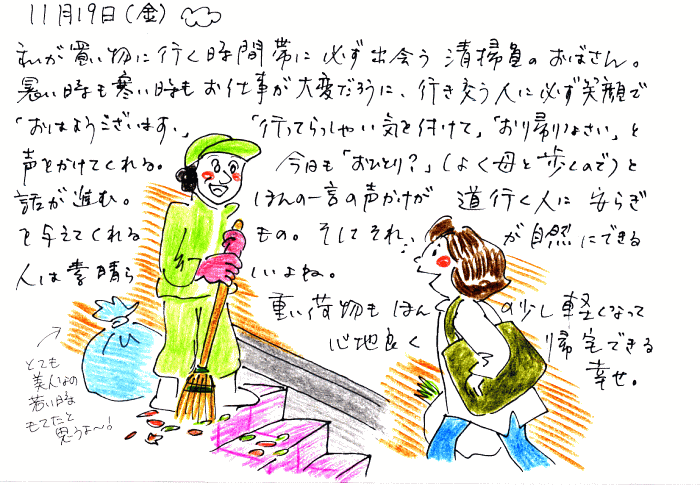 11月19日(金)
私が買い物に行く時間帯に必ず出会う清掃員のおばさん。
暑い時も寒い時もお仕事が大変だろうに、行き交う人に必ず笑顔で
「おはようございます。」「行ってらっしゃい気を付けて」「お帰りなさい」と
声をかけてくれる。今日も「おひとり?」(よく母と歩くので)と
話が進む。ほんの一言の声かけが道行く人に安らぎ
を与えてくれるもの。そしてそれが自然にできる
人は素晴らしいよね。
重い荷物もほんの少し軽くなって
心地良く帰宅できる
幸せ。
とても
美人なの
若い時は
もてたと
思うよ〜!